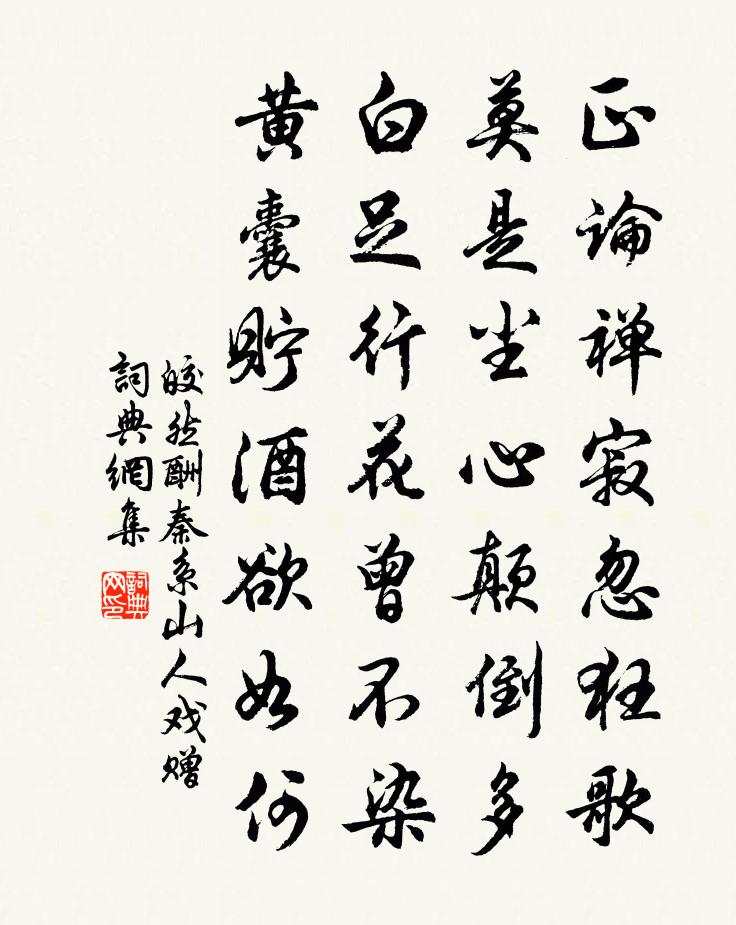 正論禅寂忽狂歌
莫是尘心顛倒多
白足行花曾不染
黄囊貯酒欲如何
皎然酬秦系山人戏赠
詞典網集
詞典网印